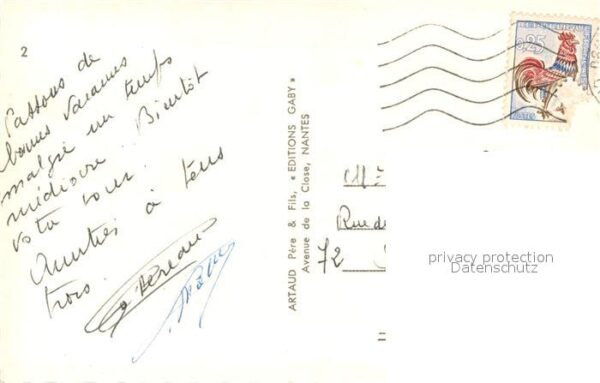 2
Passons de
bonnes vacances
malgré un temps
médiocre. Bientôt
votre tour.
Amitiés à tous
trois.
ARTAUD Père & Fils, « EDITIONS GABY »
Avenue de la Close, NANTES
0,25
Rue de
72
privacy protection
Datenschutz